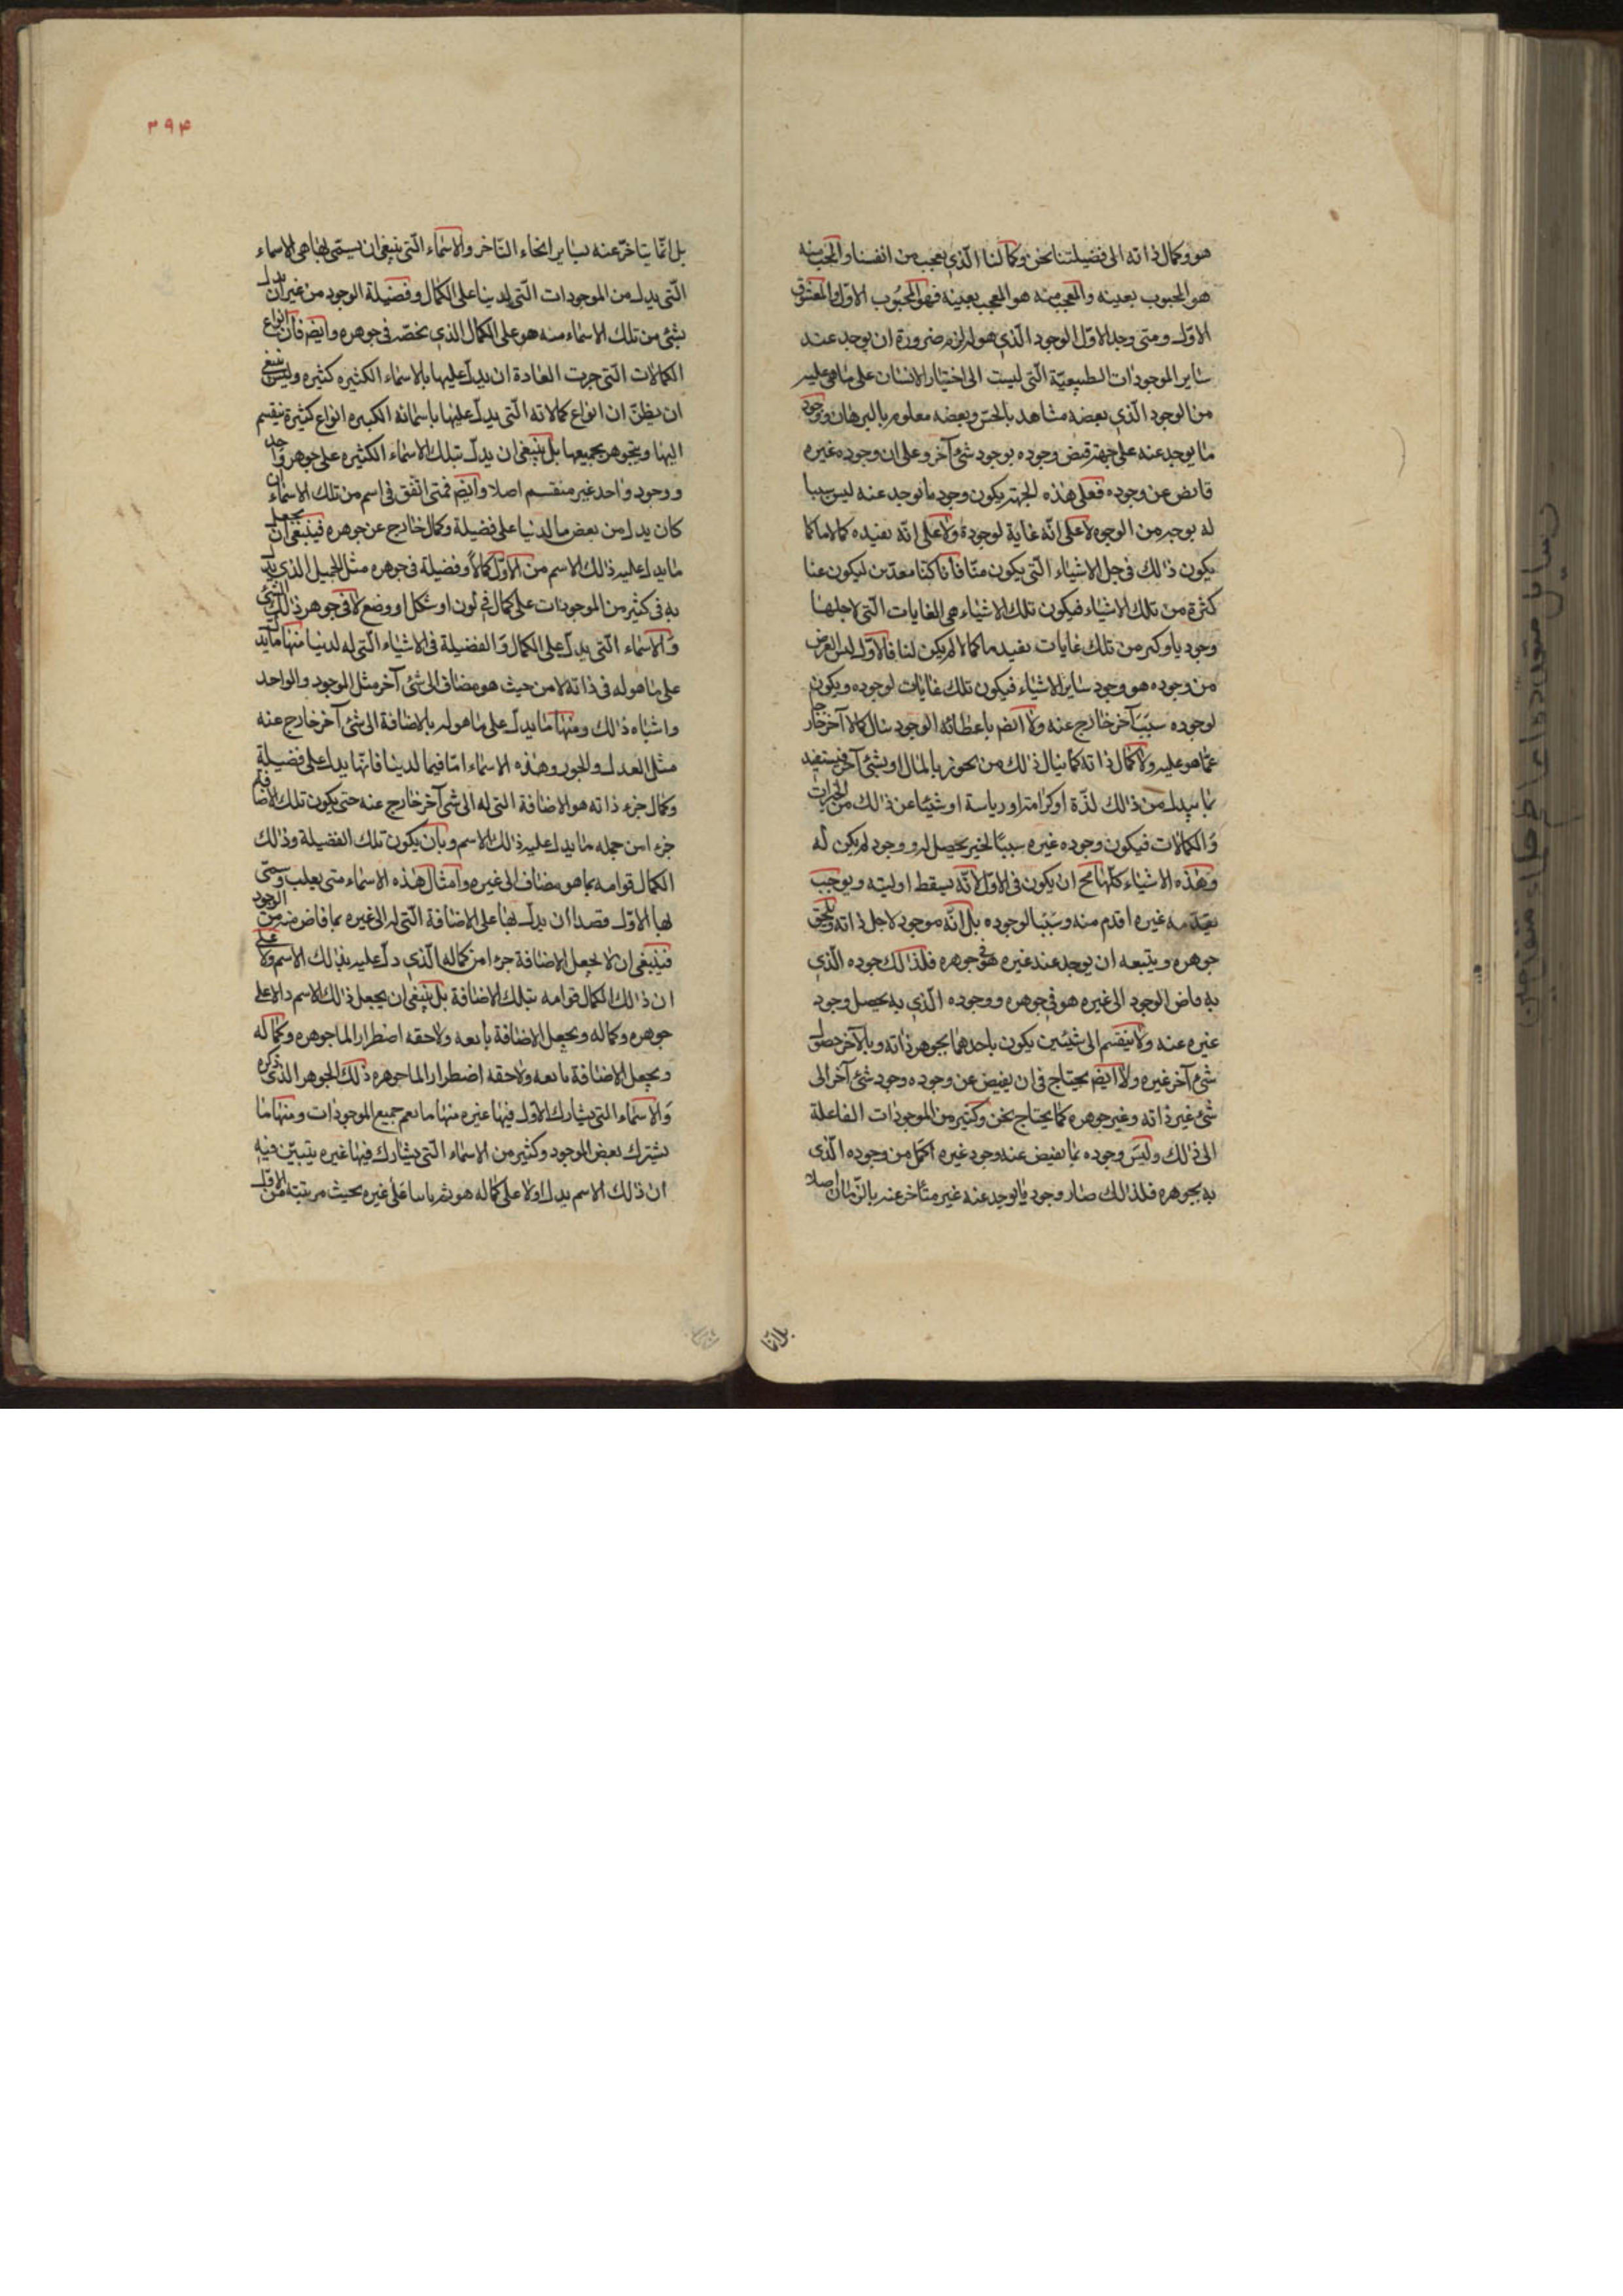 هو وكمال ذاته الى فضيلتنا نحن وكمالنا الّذي نعجب من انفسنا والمحب منه
هو المحبوب بعينه والمعجب منه هو المعجب بعينه فهو المحبوب الاوّل والمعشوق
الاوّل ومتى وجد الاوّل الوجود الّذي هو له لزم ضرورة ان يوجد عنه
ساير الموجودات الطبيعيّة الّتي ليست الى اختيار الانسان على ما هي عليه
من الوجود الّذي بعضه مشاهد بالحسّ وبعضه معلوم بالبرهان ووجود
ما يوجد عنه على جهة فيض وجوده بوجود شئ آخر وعلى ان وجود غيره
فايض عن وجوده فعلى هذه الجهة يكون وجود ما يوجد عنه ليس سببا
له بوجه من الوجوه لا على انّه غاية لوجوده ولا على انّه يفيده كمالا ما كما
يكون ذلك في جل الاشياء الّتي يكون منّا فانا كنّا معدّين ليكون عنا
كثرة من تلك الاشياء فيكون تلك الاشياء هي الغايات الّتي لاجلها
وجودنا وكم من تلك غايات يفيدنا كمالا لم يكن لنا فالاوّل ليس الغرض
من وجوده هو وجود ساير الاشياء فيكون تلك غايات لوجوده ويكون
لوجوده سببًا آخر خارج عنه ولا ايضم باعطائه الوجود ينال كمالا آخر خارجا
عمّا هو عليه ولا كمال ذاته كما ينال ذلك من يجود بالمال او بشئ آخر فيستفيد
بما يبذل من ذلك لذّة او كرامة او رياسة او شيئا عن ذلك من الخيرات
والكمالات فيكون وجود غيره سببًا لخير يحصل له ووجود لم يكن له
وهذه الاشياء كلّها مح ان يكون في الاوّل لانّه يسقط اوليته ويوجب
تقدمه غيره اقدم منه وسببًا لوجوده بل انّه موجود لاجل ذاته ويلحق
جوهره ويتبعه ان يوجد عنه غيره هو في جوهره فلذلك جوده الّذي
به فاض الوجود الى غيره هو في جوهره ووجوده الّذي به يحصل وجود
غيره عنه ولا ينقسم الى شيئين يكون باحدهما تجوهر ذاته وبالآخر حصول
شئ آخر غيره ولا ايضم يحتاج في ان يفيض عن وجوده وجود شئ آخر الى
شئ غير ذاته وغير جوهره كما يحتاج نحن وكثير من الموجودات الفاعلة
الى ذلك وليس وجوده بما يفيض عنه وجود غيره اكمل من وجوده الّذي
به تجوهره فلذلك صار وجود ما يوجد عنه غير متأخر عنه بالزّمان اصلا
بلاتا
٣٩۴
بل انّما يتاخّر عنه بساير انحاء التاخر والاسماء الّتي ينبغي ان يسمى بها هي الاسماء
الّتي يدل من الموجودات الّتي لدينا على الكمال وفضيلة الوجود من غير ان يدل
بشئ من تلك الاسماء منه هو على الكمال الذي يخصّه في جوهره وايضم فان انواع
الكمالات الّتي جرت العادة ان يدل عليها بالاسماء الكثيره كثيره وليس ينبغي
ان يظنّ ان انواع كمالاته الّتي يدل عليها باسمائه الكثيره انواع كثيرة ينقسم
اليها ويتجوهر بجميعها بل ينبغي ان يدل بتلك الاسماء الكثيره على جوهر واحد
ووجود واحد غير منقسم اصلا وايضم فمتى اتفق في اسم من تلك الاسماء ان
كان يدل من بعض ما لدنيا على فضيلة وكمال خارج عن جوهره فينبغي ان يجعل
ما يدل عليه ذلك الاسم من الاوّل كمالا وفضيلة في جوهره مثل الجميل الذي يدل
به في كثير من الموجودات على كمال في لون او شكل او وضع لا في جوهر ذلك الشئ
والاسماء الّتي يدل على الكمال والفضيلة في الاشياء الّتي له لدنيا منها ما يدل
على ما هو له في ذاته لا من حيث هو مضاف الى شئ آخر مثل الموجود والواحد
واشباه ذلك ومنها ما يدل على ما هو له بالاضافة الى شئ آخر خارج عنه
مثل العدل والجود وهذه الاسماء امّا فيما لدينا فانّها يدل على فضيلة
وكمال جزء ذاته هو الاضافة التي له الى شئ آخر خارج عنه حتى يكون تلك الاضافة
جزءا من جمله ما يدل عليه ذلك الاسم وبان يكون تلك الفضيلة وذلك
الكمال قوامه بما هو مضاف الى غيره وامثال هذه الاسماء متى يعلب وسمّى
بها الاوّل قصدا ان يدل بها على الاضافة الّتي له الى غيره بما فاض منه من الوجود
فينبغي ان لا يجعل الاضافة جزءا من كماله الّذي دل عليه بذلك الاسم ولا على
ان ذلك الكمال قوامه بتلك الاضافة بل ينبغي ان يجعل ذلك الاسم دالا على
جوهره وكماله ويجعل الاضافة تابعه ولاحقه اضطرارا لما جوهره وكماله
ويجعل الاضافة تابعه ولاحقه اضطرارا لما جوهره ذلك الجوهر الذي ذكره
والاسماء التي يشارك الاوّل فيها غيره منها ما يعم جميع الموجودات ومنها ما
يشترك بعض الموجود وكثير من الاسماء الّتي يشارك فيها غيره يتبيّن فيه
ان ذلك الاسم يدل اولا على كماله هو ثم ثانيا على غيره بحيث مرتبته من الاوّل